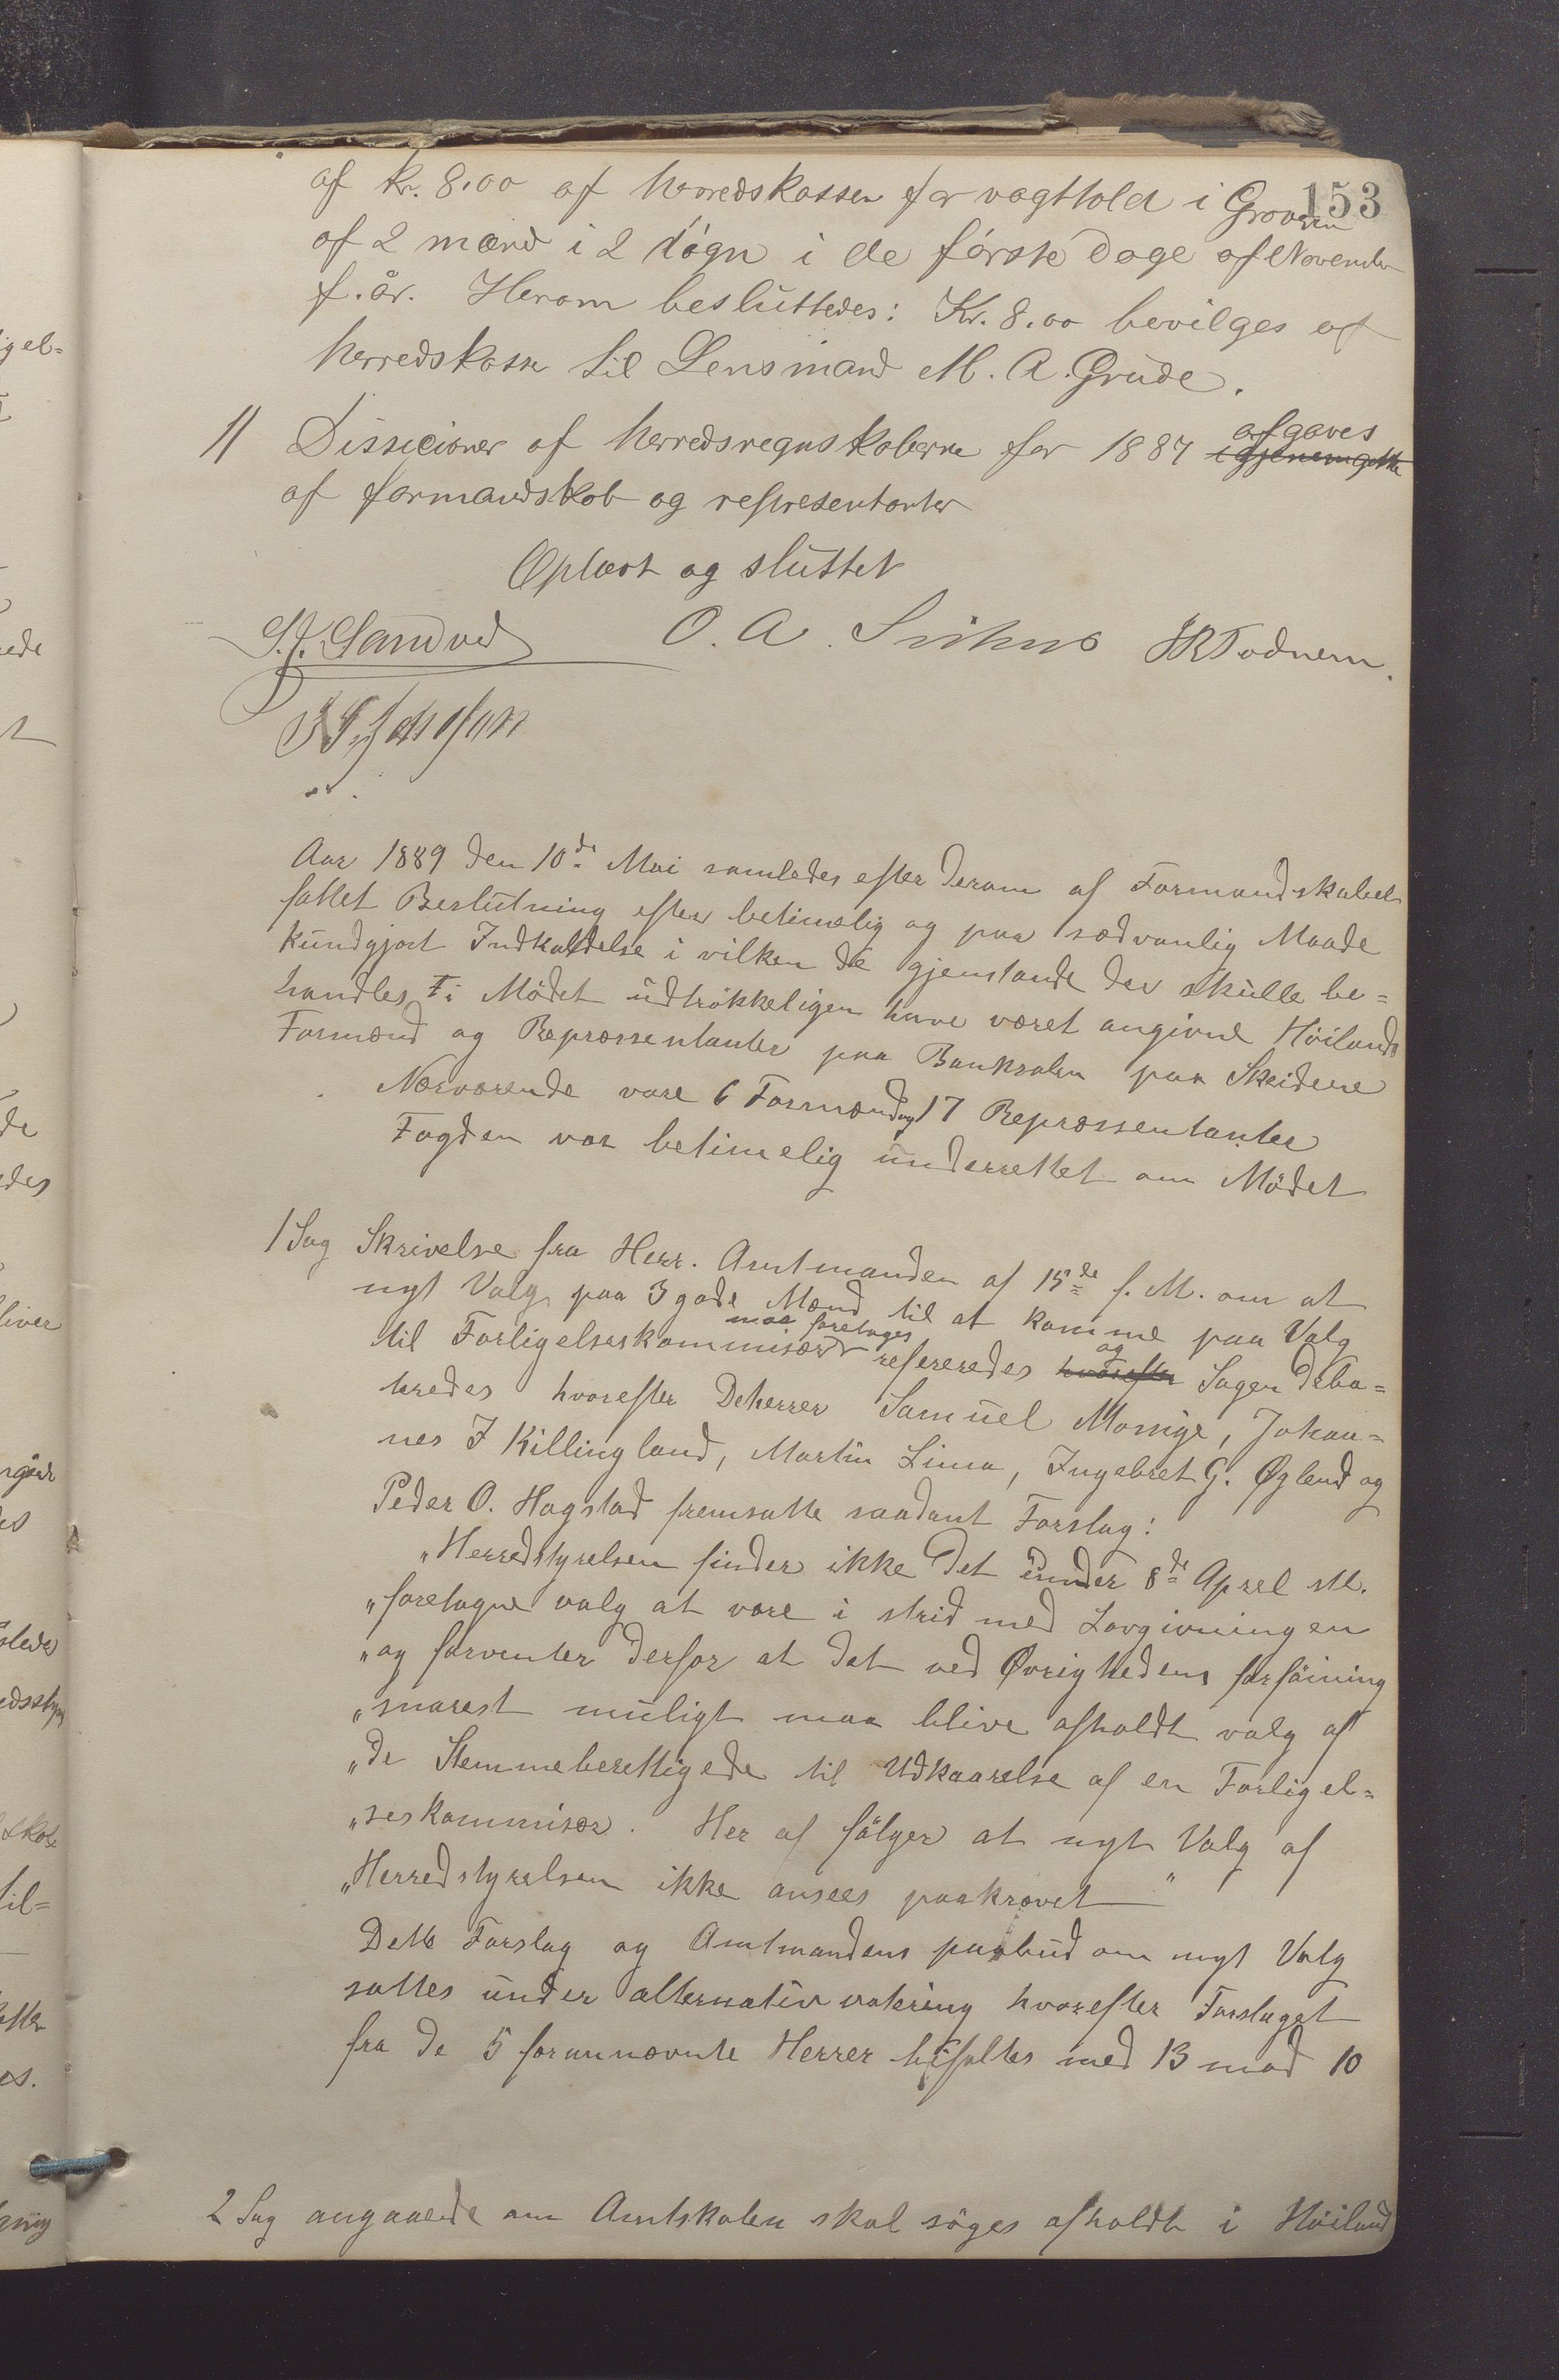 153
af Kr. 8.00 af herredskassen for vagthold i Gravaren
af 2 mænd i 2 døgn i de første dage af November
f. år. Herom besluttedes: Kr. 8.00 bevilges af
herredskassen til Lensmand M. A. Grude.
11 Dissicioner af herredsregnskaberne for 1887 afgaves
af formandskab og representanter
Oplæst og sluttet
S. J. Sandved O. A. JRTodnem.
Aar 1889 den 10de Mai samledes efter derom af Formandskabet
fattet Beslutning efter betimelig og paa sædvanlig Maade
kundgjort Indkaldelse i vilken de gjenstande der skulle be=
handles i Mödet udtrökkeligen have været angivne Höilands
Formænd og Repræssentanter paa Banksalen paa Skeidene
Nærværende vare 6 Formænd og 17 Repræssentanter
Fogden var betimelig underrettet om Mödet
1 Sag Skrivelse fra Herr. Amtmanden af 15de f. M. om at
nyt Valg paa 3 gode Mænd til at komme paa Valg
til Forligelseskommisær maa foretages refereredes hvorefter og Sagen deba=
teredes hvorefter Deherrer Samuel Monige, Johan=
nes J Killingland, Martin Lima, Ingebret G. Øglend og
Peder O. Hogstad fremsatte saadant Forslag:
„Herredstyrelsen finder ikke det under 8de Aprel
„foretagne valg at være i strid med Lovgivningen
„og forventer derfor at det ved Øvrighedens forföining
„snarest muligt maa blive afholdt valg af
„de Stemmeberettigede til Udkaarelse af en Forligel=
„seskommisær. Her af fölger at nyt Valg af
„Herredstyrelsen ikke ansees paakrævet"
Dette Forslag og Amtmandens paabud om nyt Valg
sattes under alternativ votering hvorefter Forslaget
fra de 5 forannævnte Herrer bifaltes med 13 mod 10
2 Sag angaaende om Amtskolen skal söges afholdt i Höiland